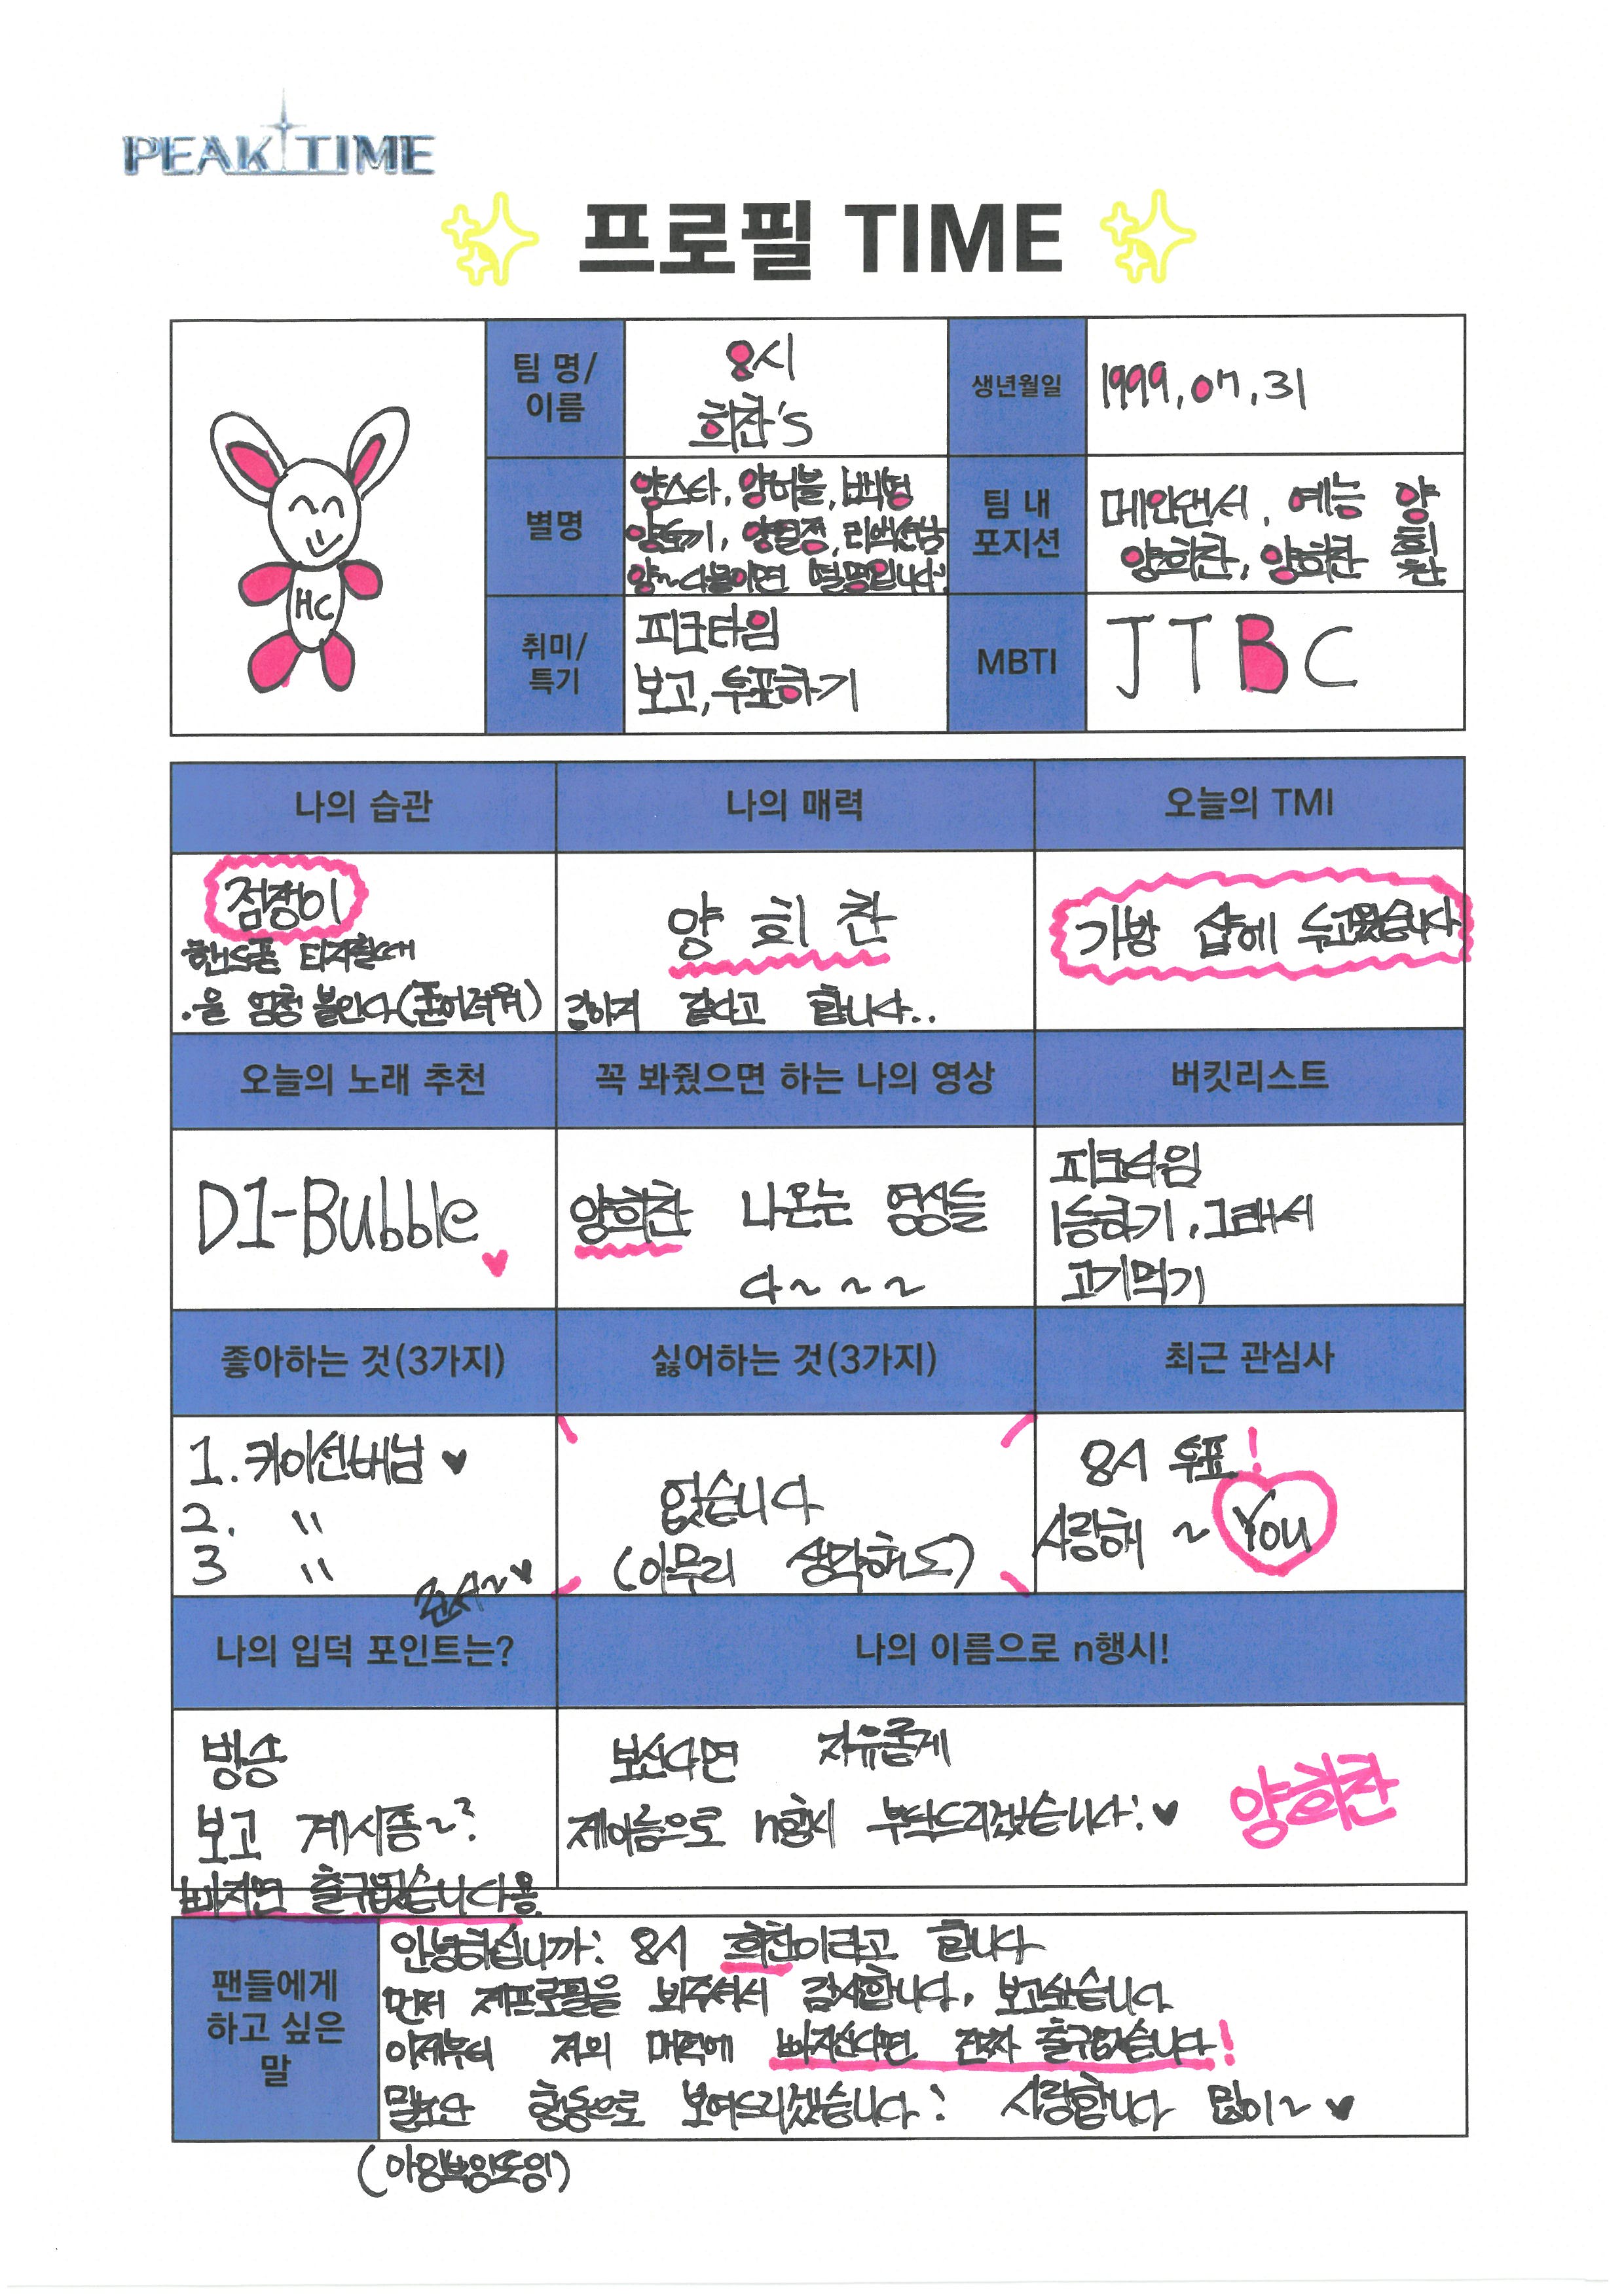 PEAK TIME
프로필 TIME
팀 명/
이름
8시
희찬's
생년월일
1999.07.31
별명
양스타, 양허블, 빠넝
양토끼, 양열정, 리액션남
양~다붙이면 별명입니다!
팀 내
포지션
메인댄서, 예능 양
양희찬, 양희찬 희
찬
취미/
특기
피크타임
보고, 투표하기
MBTI
JTBC
HC
나의 습관
나의 매력
오늘의 TMI
점쟁이
핸드폰 타자칠때
.을 엄청 붙인다(줄이려워)
양 희 찬
강아지 같다고 합니다..
가방 샵에 두고왔습니다
오늘의 노래 추천
꼭 봐줬으면 하는 나의 영상
버킷리스트
D1-Bubble
양희찬 나온는 영상들
다~~~
피크타임
1등하기, 그래서
고기먹기
좋아하는 것(3가지)
싫어하는 것(3가지)
최근 관심사
1. 케이선배님 ♥
2. "
3 "
없습니다
(아무리 생각해도)
8시 투표!
사랑해 ~ You
나의 입덕 포인트는?
나의 이름으로 n행시!
방송
보고 계시죵~?
빠지면 출구없습니다용
보신다면 자유롭게
제이름으로 n행시 부탁드리겠습니다! ♥
양희찬
팬들에게
하고 싶은
말
안녕하십니까! 8시 희찬이라고 합니다
먼저 제프로필을 봐주셔서 감사합니다. 보고싶습니다
이제부터 저의 매력에 빠지신다면 진짜 출구없습니다!
말보단 행동으로 보여드리겠습니다! 사랑합니다 많이~ ♥